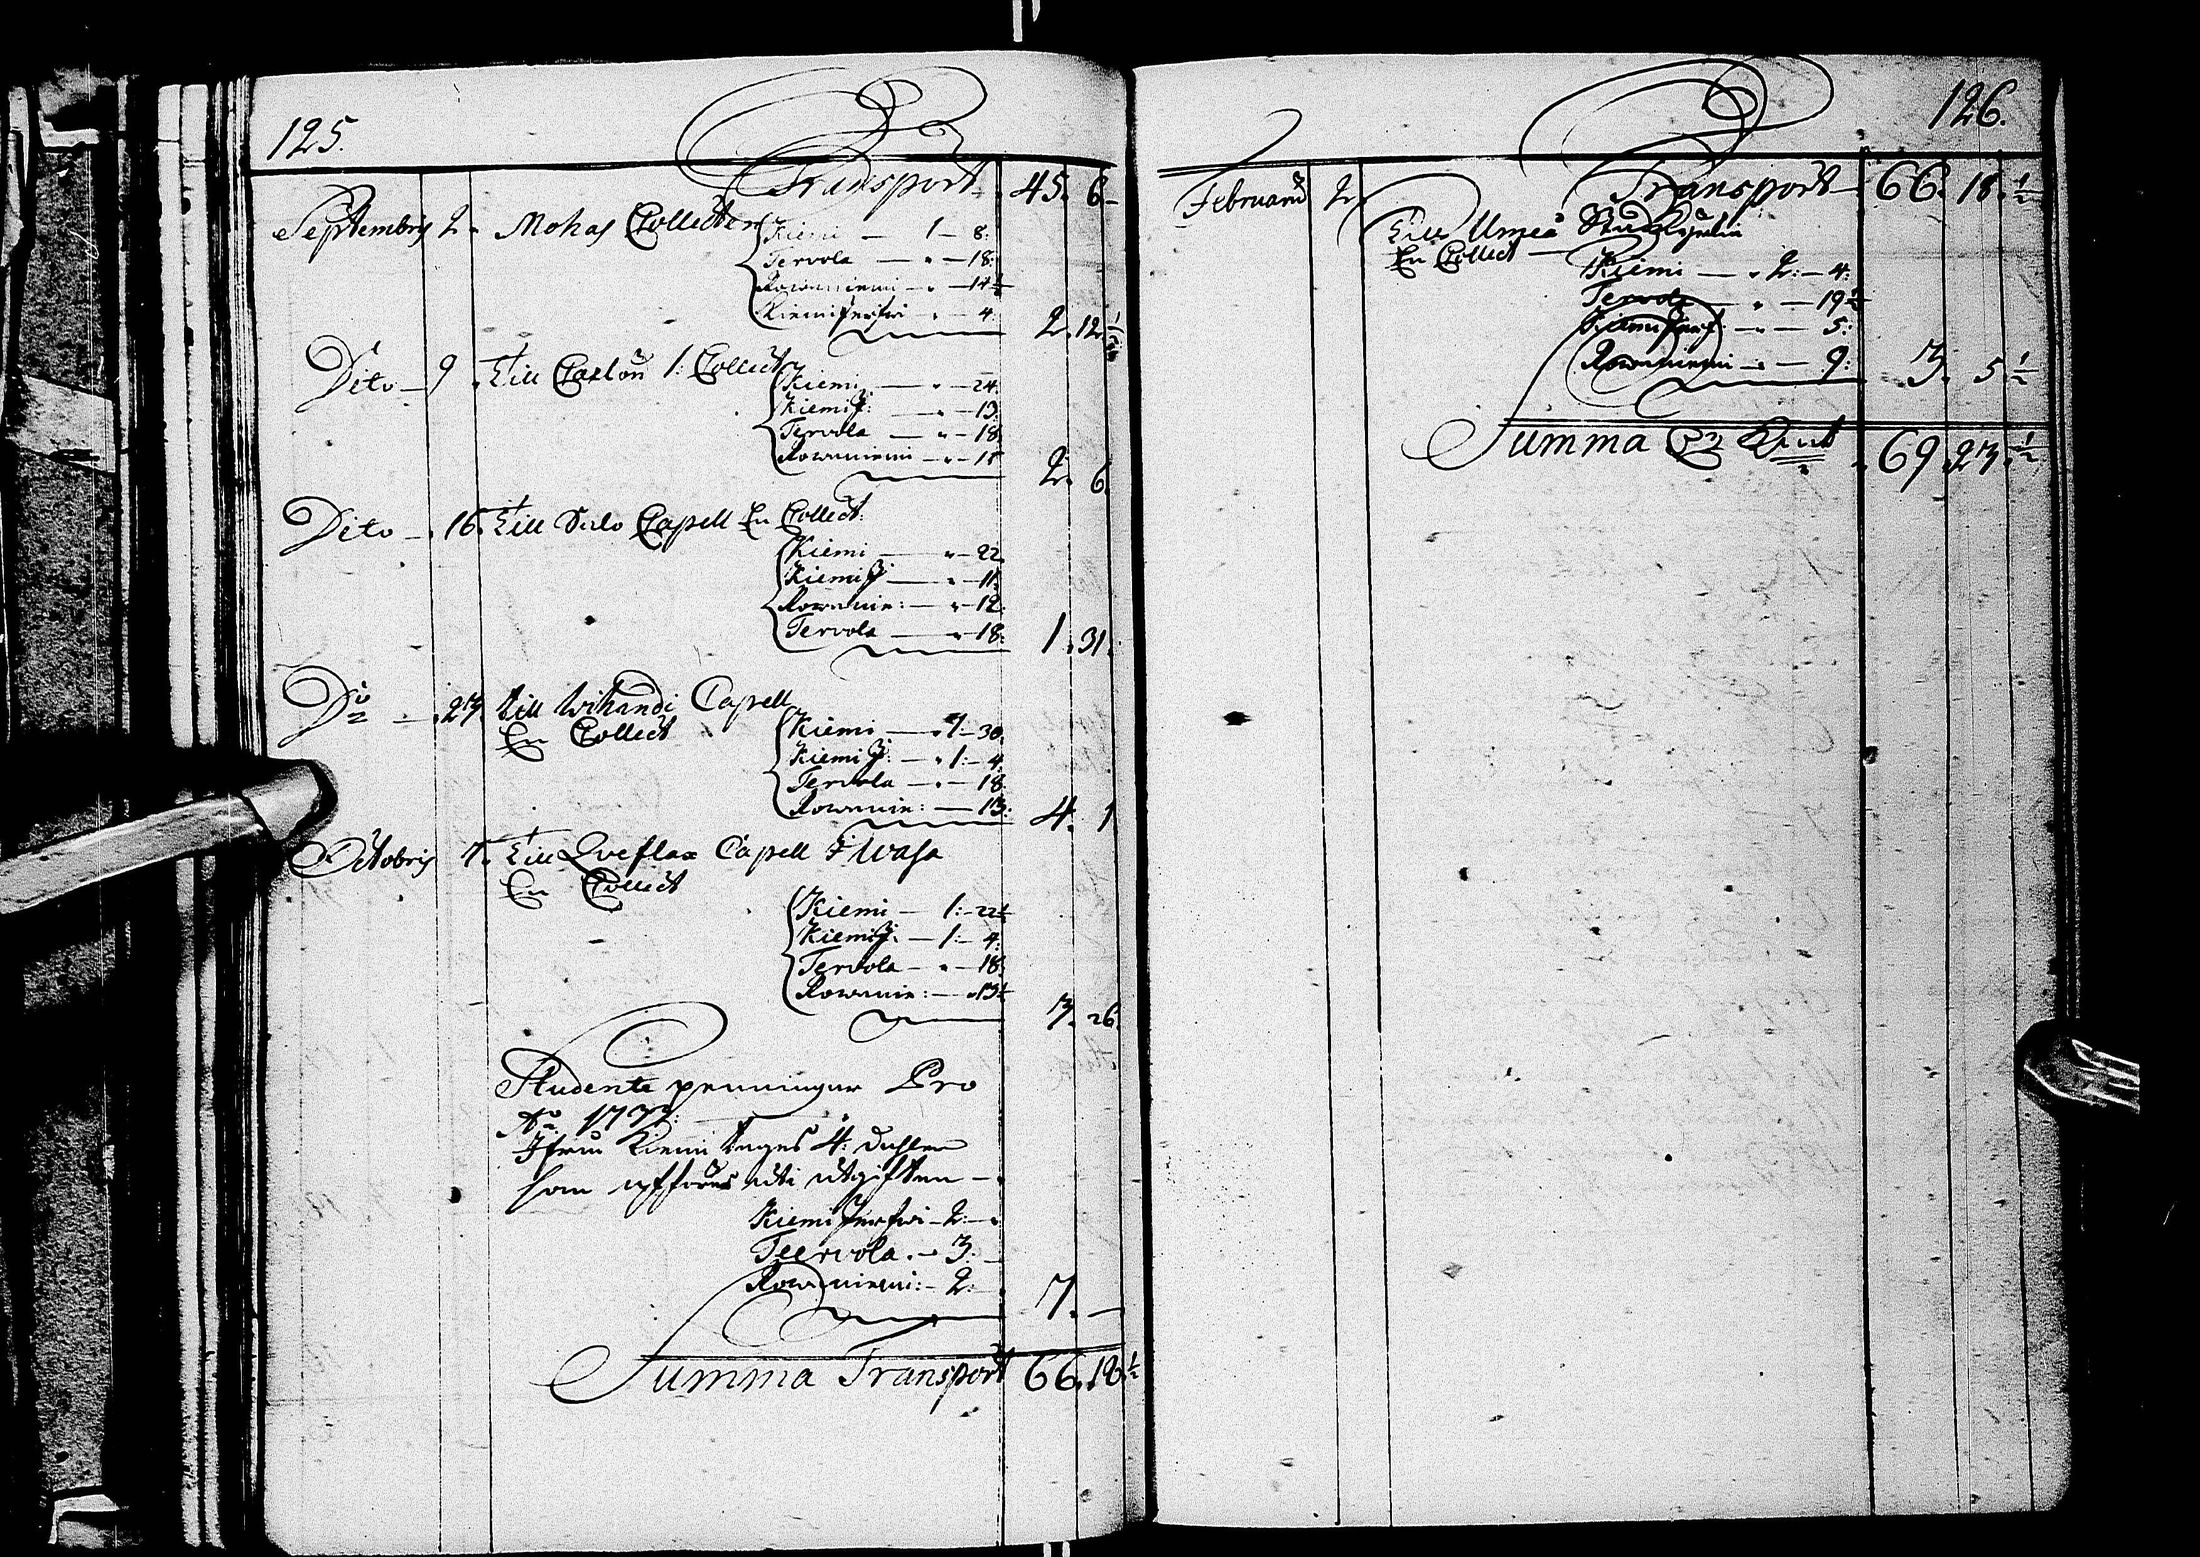 125.
Transport 45. 6
Septembris 2. Mohas Collecten Kiemi — 1 — 8:
Tervola — „ — 18:
Rowaniemi — „ — 14½
Kiemiserfwi — „ — 4: 2. 12. ½
Dito — 9 Till 1: Collect Kiemi — „ — 24.
Kiemi J: — „ — 13:
Tervola — „ — 18
Rowaniemi — „ — 15 2. 6.
Dito — 16. Till Salo Capell En Collect:
Kiemi — „ — 22
Kiemi J — „ — 11:
Rowanie: — „ — 12:
Tervola — „ — 18: 1. 31.
Do — 23. Till Wihandi Capell
En Collect Kiemi — 1: — 30.
Kiemi J: — „ 1: — 4.
Tervola — „ — 18
Rowanie: — 13: 4. 1
Octobris 7. Till Qveflax Capell I Wasa
En Collect
Kiemi — 1: — 22½
Kiemi J: — 1: — 4:
Tervola — „ — 18:
Rowanie: — „ 13½ 3. 26.
Studente penningar Pro
Ao 1737:
Ifrån Kiemi tages 4: dahler
som upföres uti utgiften —
Kiemi Jerfwi — 2: —
Teervola. — 3: —
Rowaniemi: — 2: — 7. —
Summa Transport 66. 18. ½
126.
Transport — 66. 18. ½
Februarii 2. Till Umeå
En Collect —
Kiemi — „ 2: — 4:
Tervola — „ — 19½
Kiemi Jerf: — „ — 5:
Rowaniemi — „ — 9: 3. 5 ½
Summa 69. 23. ½